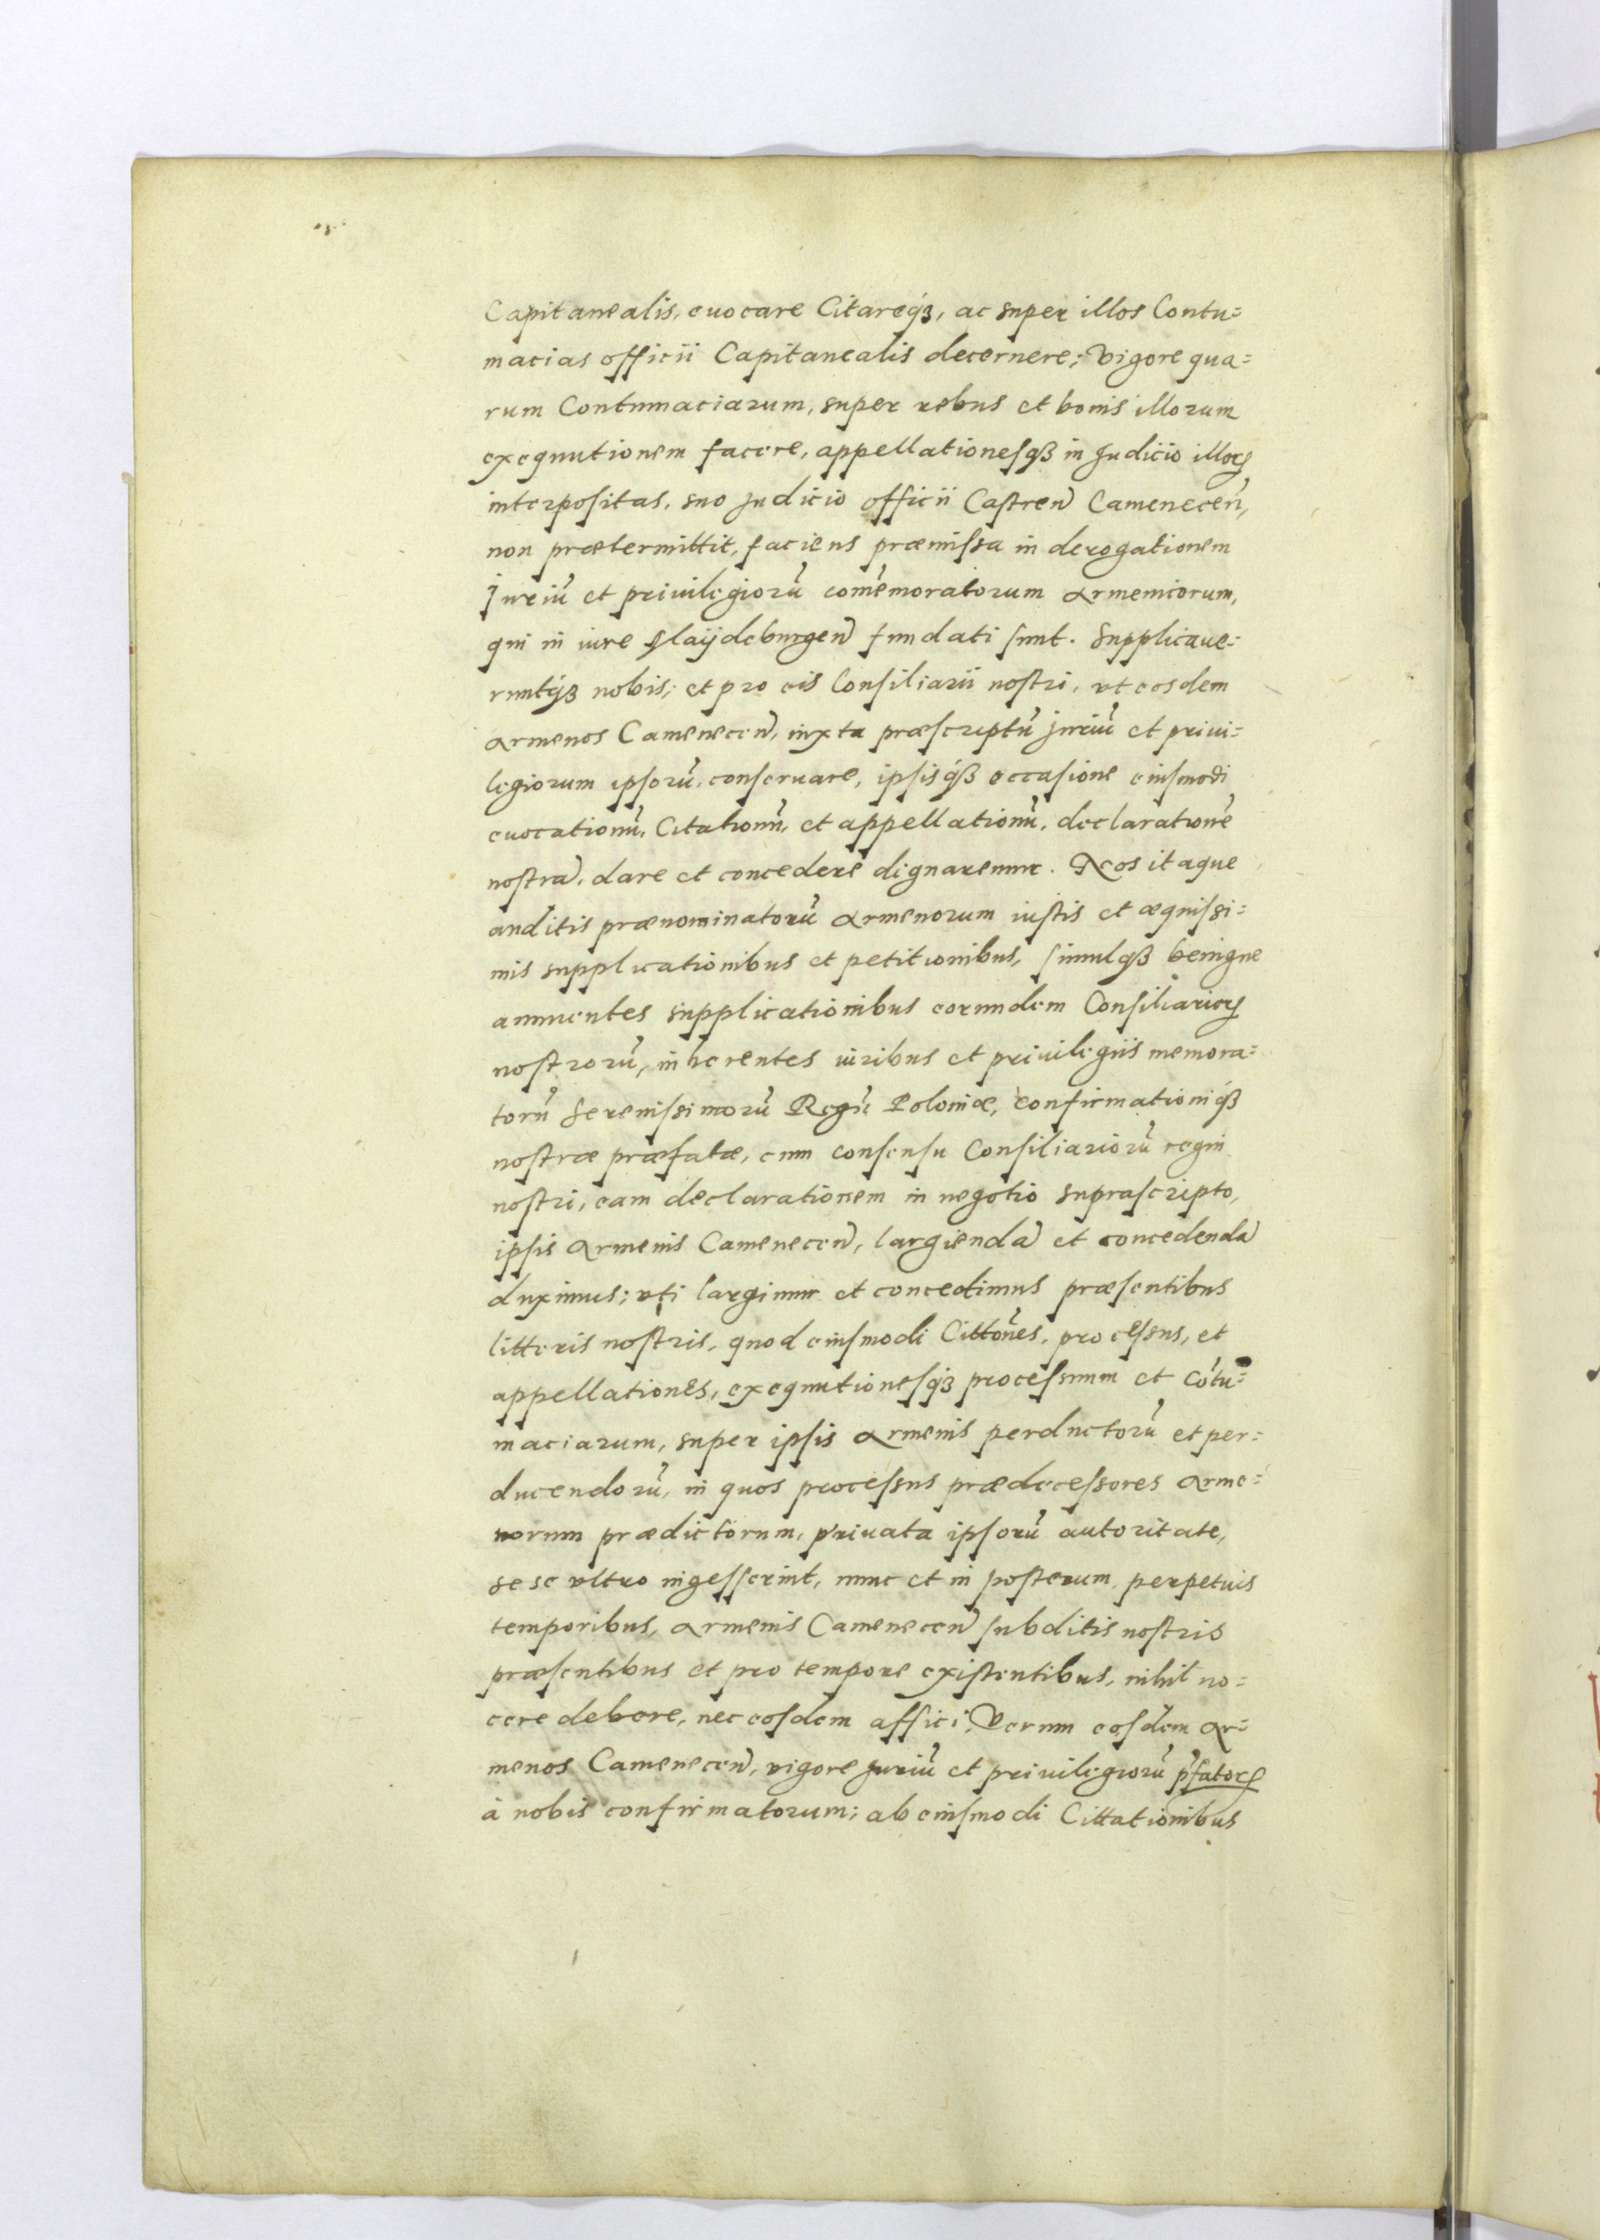 Capitanealis, euocare Citareqꝫ, ac super illos Contu=
macias officii Capitanealis decernere; Vigore qua=
rum Contumaciarum, super rebus et bonis illorum
exequutionem facere, appellationesqꝫ in Judicio illoꝝ
interpositas, suo Judicio officii Castren̄ Camenecen̄,
non prætermittit, faciens præmissa in derogationem
Juriū et priuilegiorū com̄emoratorum Armenicorum,
qui in iure Maijdeburgen̄ fundati sunt. Supplicaue=
runtqꝫ nobis; et pro eis Consiliarii nostri, vt eosdem
Armenos Camenecen̄, iuxta præscriptū juriū et priui=
legiorum ipsorū, conseruare, ipsisqꝫ occasione eiusmodi
euocationū, Citationū, et appellationū, declarationē
nostrā, dare et concedere dignaremur. Nos itaque
auditis prænominatorū Armenorum iustis et æquissi=
mis supplicationibus et petitionibus, simulqꝫ benigne
annuentes supplicationibus eorundem Consiliarioꝝ
nostrorū, inherentes iuribus et priuilegiis memora=
torū Serenissimorū Regū Poloniæ, confirmationiqꝫ
nostræ præfatæ, cum consensu Consiliariorū regni
nostri, eam declarationem in negotio suprascripto,
ipsis Armenis Camenecen̄, largiendā et concedendā
duximus; vti largimur et concedimus præsentibus
litteris nostris, quod eiusmodi Citto͞nes, processus, et
appellationes, exequutionesqꝫ processuum et Cōtu=
maciarum, super ipsis Armenis perductorū et per=
ducendorū, in quos processus prædecessores Arme=
norum prædictorum, priuata ipsorū autoritate,
sese vltro ingesserint, nunc et in posterum, perpetuis
temporibus, Armenis Camenecen̄ subditis nostris
præsentibus et pro tempore existentibus, nihil no=
cere debere, nec eosdem affici; Verum eosdem Ar=
menos Camenecen̄, vigore Juriū et priuilegiorū p̄fatoꝝ
à nobis confirmatorum; ab eiusmodi Cittationibus